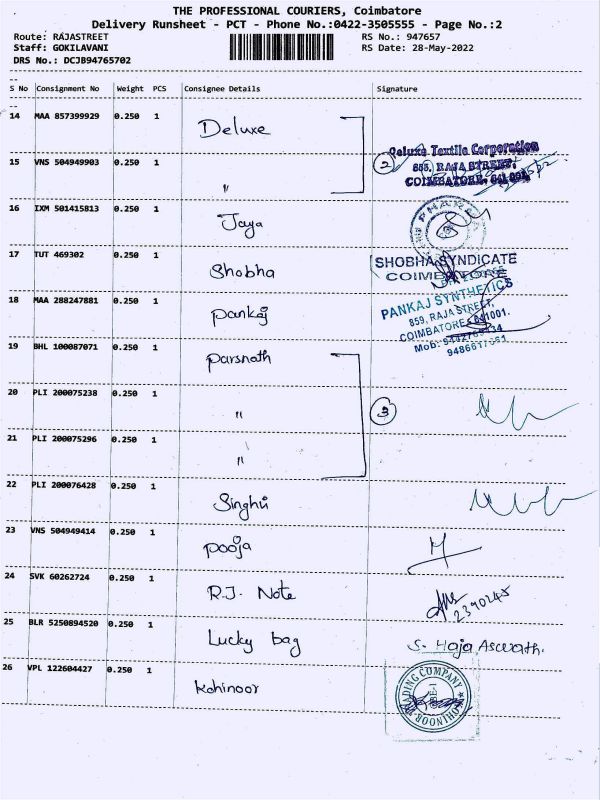 THE PROFESSIONAL COURIERS, Coimbatore
Delivery Runsheet - PCT - Phone No.:0422-3505555 - Page No.:2
Route: RAJASTREET RS No.: 947657
Staff: GOKILAVANI RS Date: 28-May-2022
DRS No.: DCJB94765702
S No Consignment No Weight PCS Consignee Details Signature
14 MAA 857399929 0.250 1 Deluxe
Deluxe Textile Corporation
15 VNS 504949903 0.250 1 " 2 855, RAJA STREET,
COIMBATORE, 641 001.
16 IXM 501415813 0.250 1 Jaya
17 TUT 469302 0.250 1 Shobha SHOBHA SYNDICATE
COIMBATORE
18 MAA 288247881 0.250 1 Pankaj PANKAJ SYNTHETICS
859, RAJA STREET,
COIMBATORE - 641001.
Mob:
19 BHL 100087071 0.250 1 Parsnath
20 PLI 200075238 0.250 1 " 3
21 PLI 200075296 0.250 1 "
22 PLI 200076428 0.250 1 Singhvi
23 VNS 504949414 0.250 1 Pooja
24 SVK 60262724 0.250 1 R.J. Note
25 BLR 5250894520 0.250 1 Lucky bag S. Haja Aswath.
26 VPL 122604427 0.250 1 Kohinoor KOHINOOR TRADING COMPANY